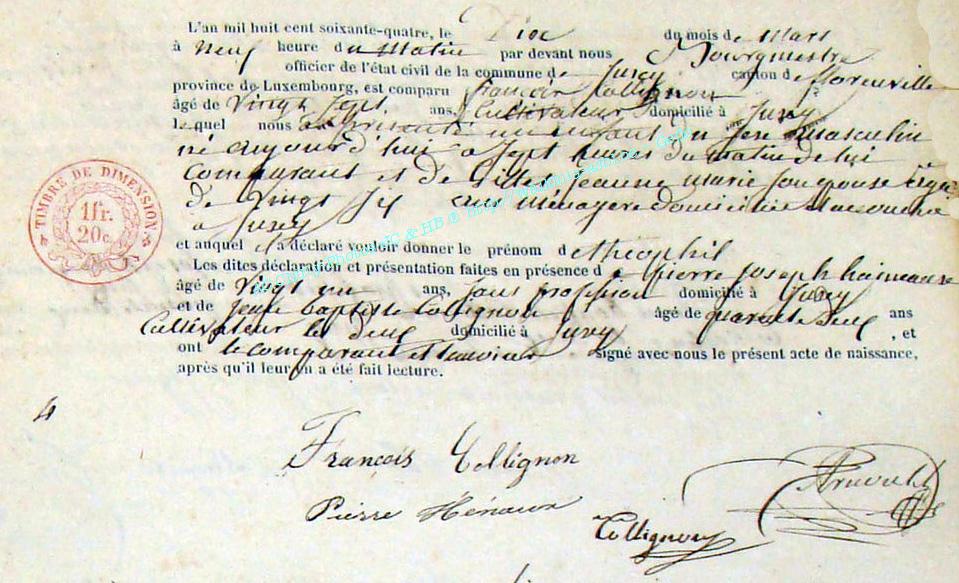 L'an mil huit cent soixante-quatre, le Dix du mois de Mars
à Neuf heure du Matin par devant nous Bourgmestre
officier de l'état civil de la commune de Jusey canton de florenville
province de Luxembourg, est comparu François Collignon
âgé de Vingt Sept ans, Cultivateur domicilié à Jusey
lequel nous a présenté un enfant du sexe masculin
né aujourd'hui à Sept heures du matin de lui
comparant et de Jeanne Marie son épouse agée
de Vingt Six ans Ménagère domiciliée et accouchée
à Jusey
et auquel il a déclaré vouloir donner le prénom de théophil
Les dites déclaration et présentation faites en présence de pierre Joseph
âgé de Vingt un ans, Sans profession domicilié à Jusey
et de Jean baptiste Collignon âgé de quarante Deux ans
Cultivateur les Deux domicilié à Jusey, et
ont le comparant et témoins signé avec nous le présent acte de naissance,
après qu'il leur en a été fait lecture.
TIMBRE DE DIMENSION
1 fr.
20 c.
4
François Collignon
Pierre Hénaux
Collignon